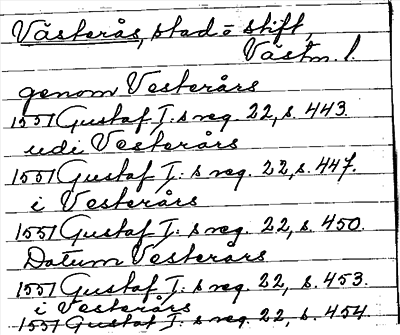 Västerås, stad o stift,
Västm. l.
genom Vesterårs
1551 Gustaf I:s reg. 22, s. 443.
udi Vesterårs
1551 Gustaf I:s reg. 22, s. 447.
i Vesterårs
1551 Gustaf I:s reg. 22, s. 450.
Datum Vesterårs
1551 Gustaf I:s reg. 22, s. 453.
i Vesterårs
1551 Gustaf I:s reg. 22, s. 454.